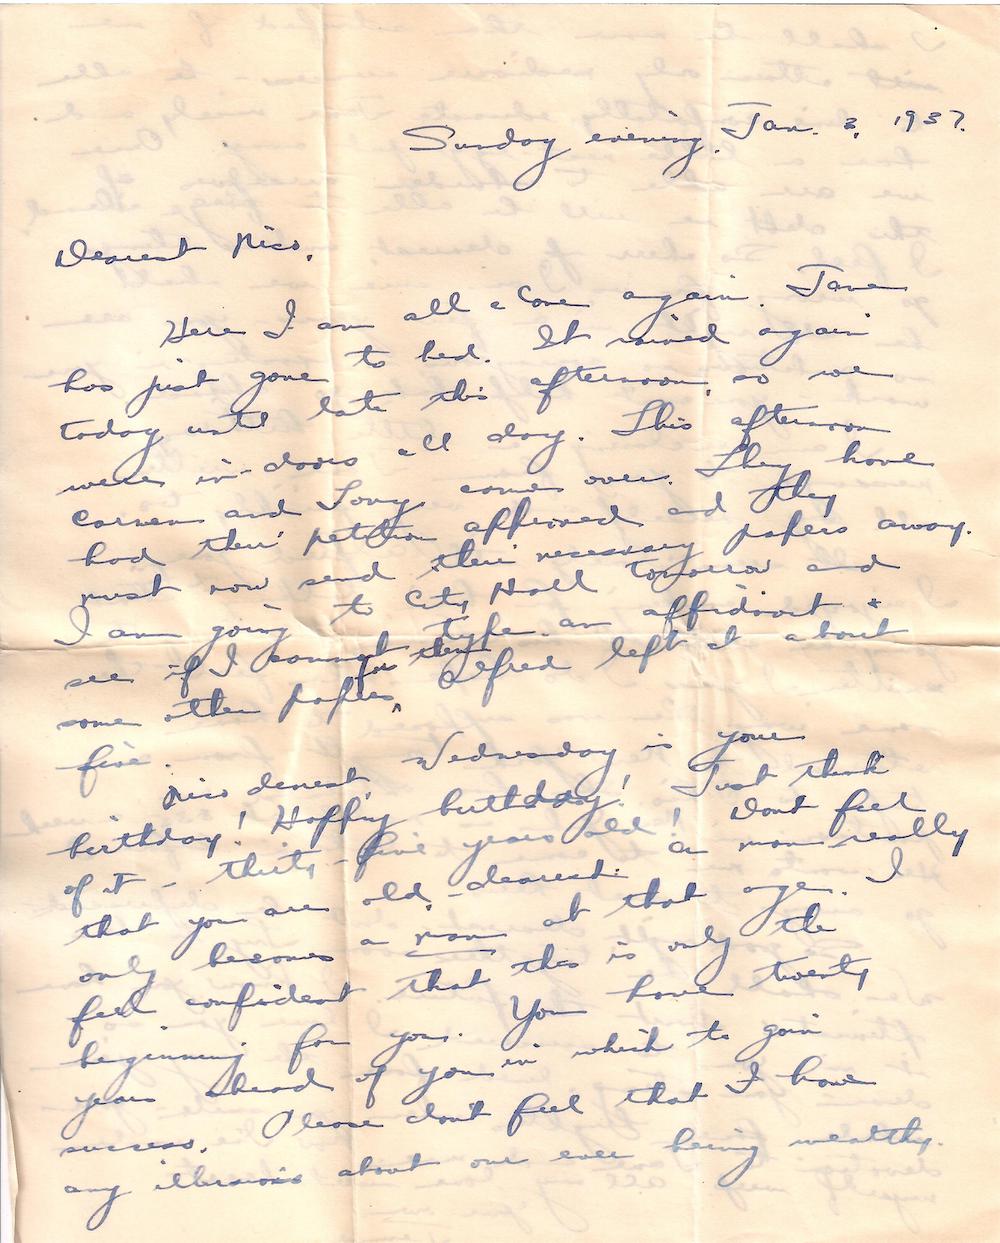 Sunday evening, Jan. 3, 1937.
Dearest Nico,
Here I am all alone again. Jane
has just gone to bed. It rained again
today until late this afternoon, so we
were in-doors all day. This afternoon
Carmen and Tony came over. They have
had their petition affirmed and they
must now send their necessary papers away.
I am going to City Hall tomorrow and
see if I cannot type an affidavit +
some other papers for them. Alfred left at about
five.
Nico dearest, Wednesday is your
birthday! Happy birthday! Just think
of it - thirty-five years old! Dont feel
that you are old, - dearest. a man really
only becomes a man at that age. I
feel confident that this is only the
beginning for you. You have twenty
years ahead of you in which to gain
success. Please don't feel that I have
any illusions about our ever being wealthy.